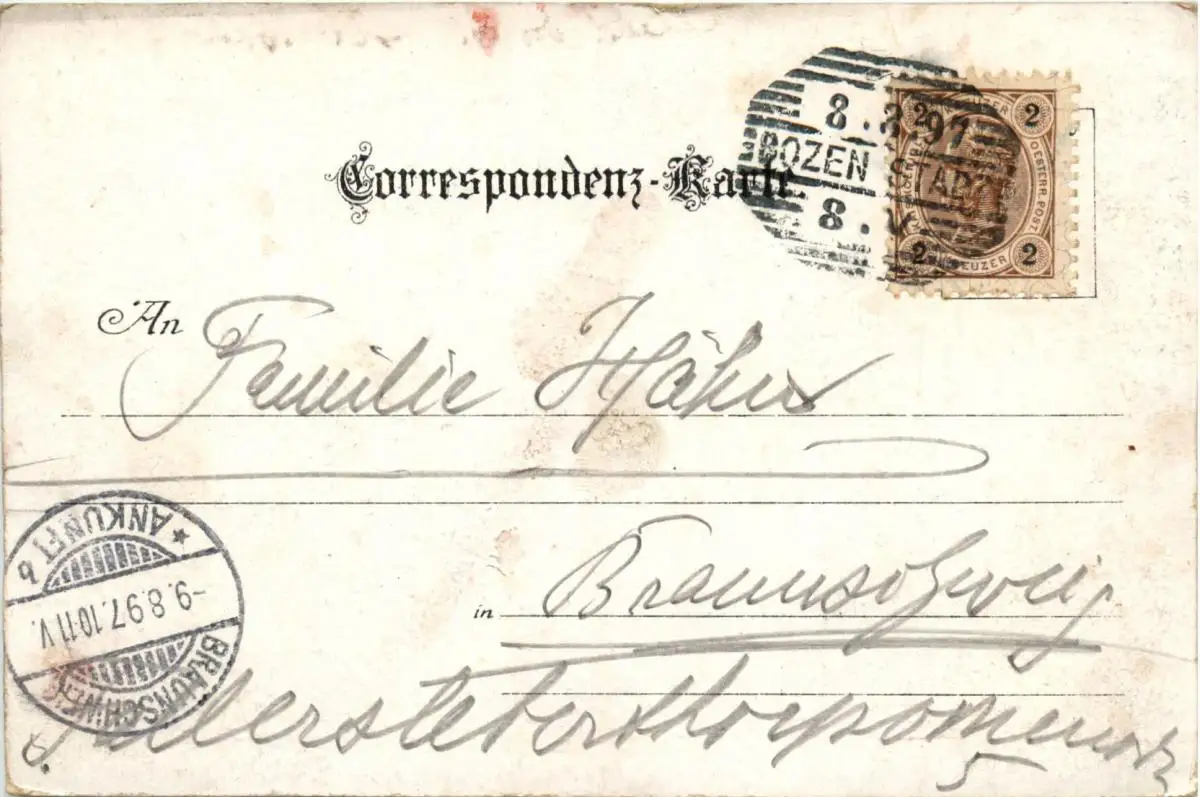 8.8.97
BOZEN STADT
8.V
2 KREUZER 2
OESTERR. POST.
2 KREUZER 2
Correspondenz-Karte.
An Familie Hähn
in Braunschweig
5
ANKUNFT b
-9.8.97.10-11 V.
BRAUNSCHWEIG